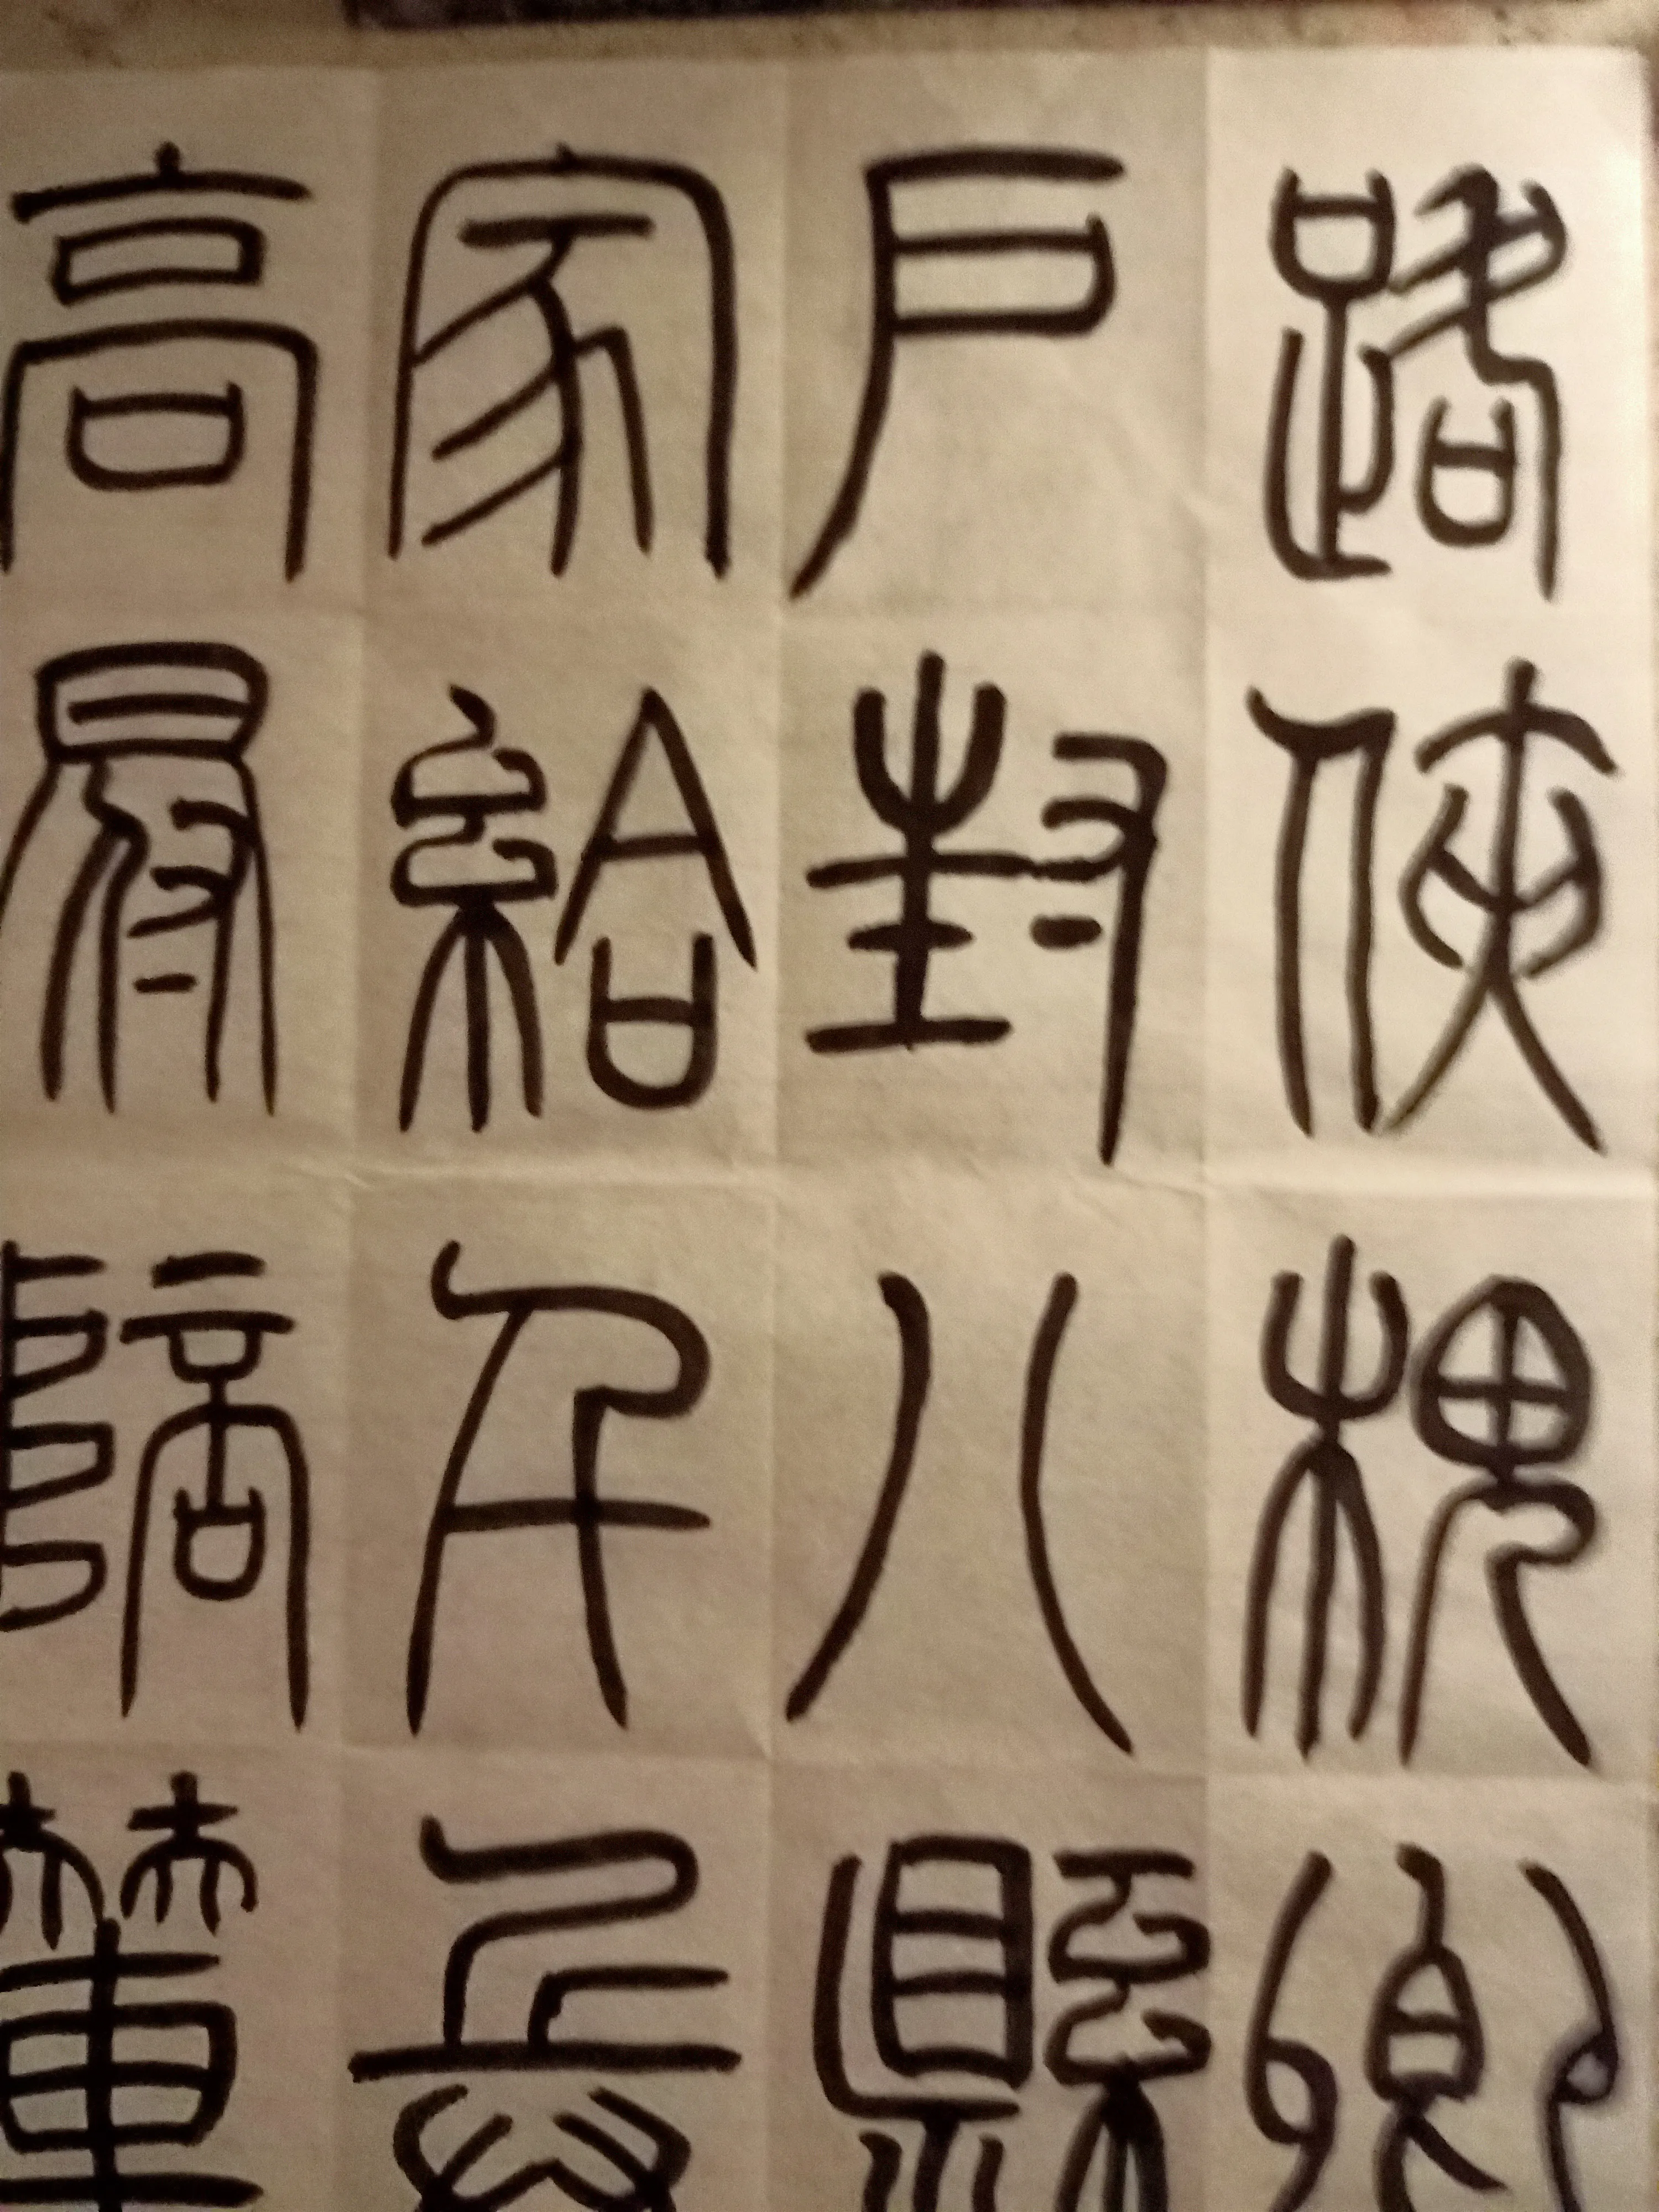 路俠槐卿
戶封八縣
家給千兵
高冠陪輦